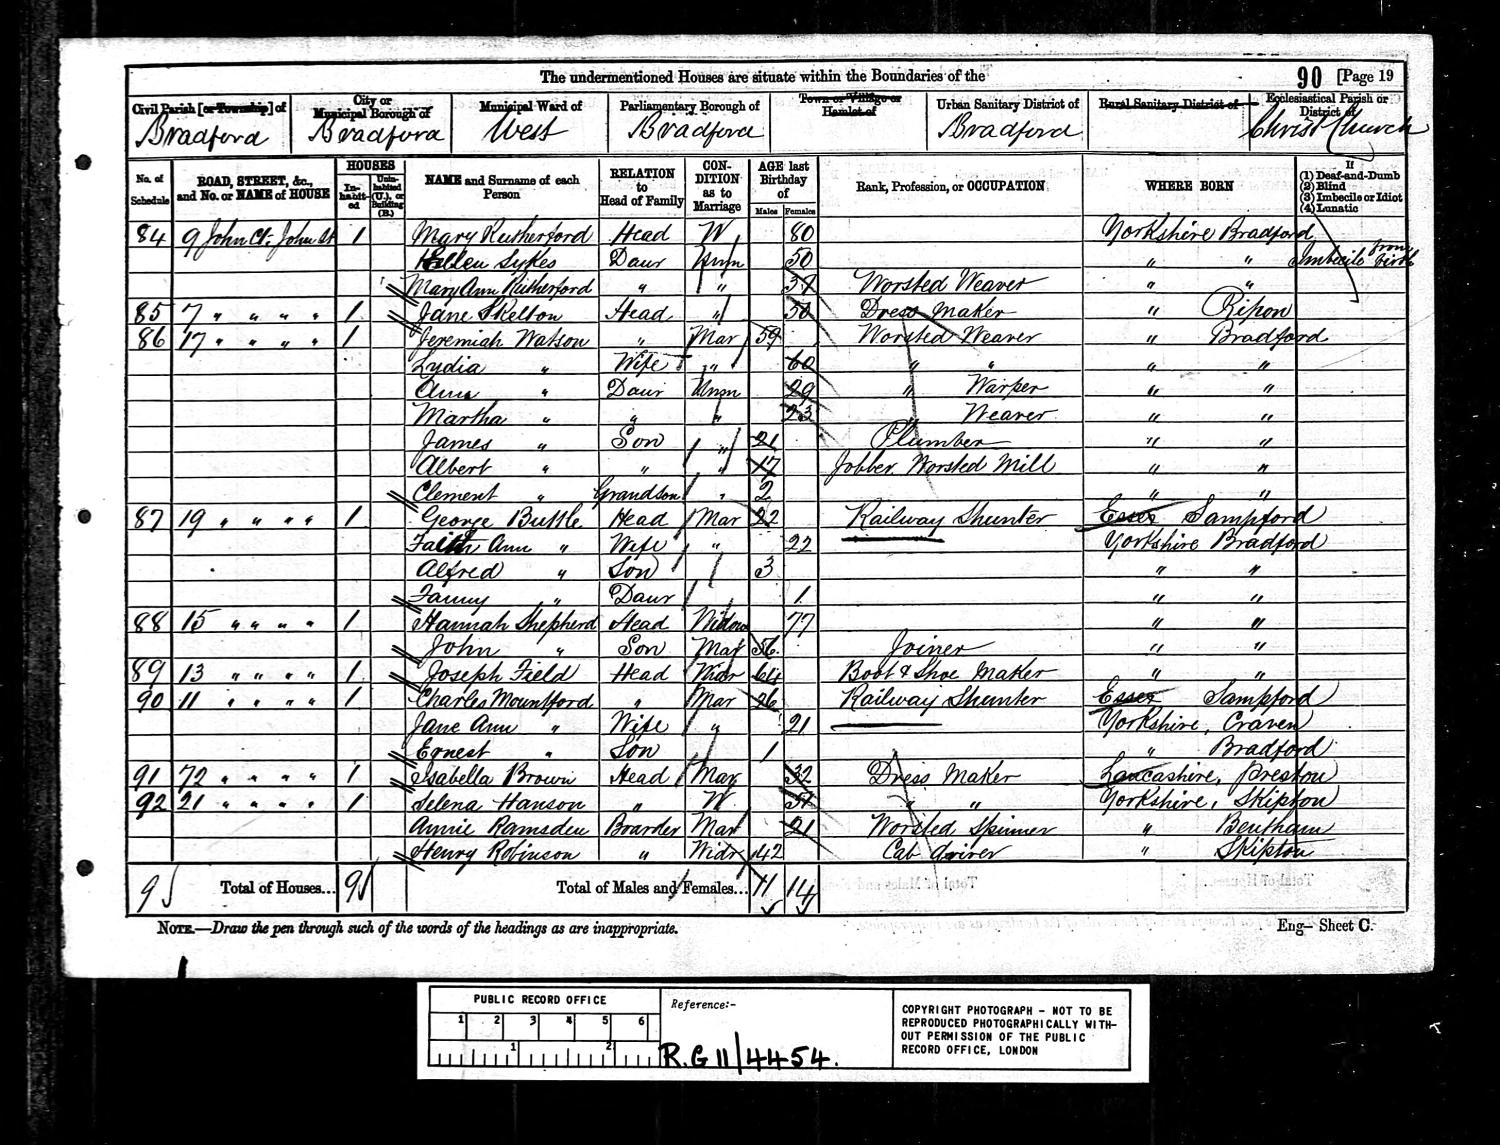 The undermentioned Houses are situate within the Boundaries of the 90 [Page 19
Civil Parish [or Township] of City or Municipal Borough of Municipal Ward of Parliamentary Borough of Town or Village or Hamlet of Urban Sanitary District of Rural Sanitary District of Ecclesiastical Parish or District of
Bradford Bradford West Bradford Bradford Christ Church
No. of Schedule ROAD, STREET, &c., and No. or NAME of HOUSE HOUSES In-habit-ed Unin-habited (U.), or Building (B.) NAME and Surname of each Person RELATION to Head of Family CON-DITION as to Marriage AGE last Birthday of Males Females Rank, Profession, or OCCUPATION WHERE BORN If (1) Deaf-and-Dumb (2) Blind (3) Imbecile or Idiot (4) Lunatic
84 9 John Ct. John St 1 Mary Rutherford Head W 80 Yorkshire Bradford
Hellen Sykes Daur Unm 50 " " Imbecile from birth
Mary Ann Rutherford " " 39 Worsted Weaver " "
85 7 " " " " 1 Jane Skelton Head " 50 Dress Maker " Ripon
86 17 " " " " 1 Jeremiah Watson " Mar 59 Worsted Weaver " Bradford
Lydia " Wife " 60 " " " "
Ann " Daur Unm 29 " Warper " "
Martha " " " 23 " Weaver " "
James " Son " 21 Plumber " "
Albert " " " 17 Jobber Worsted Mill " "
Clement " Grandson " 2 " "
87 19 " " " " 1 George Buttle Head Mar 22 Railway Shunter Essex Sampford
Faith Ann " Wife " 22 Yorkshire Bradford
Alfred " Son 3 " "
Fanny " Daur 1 " "
88 15 " " " " 1 Hannah Shepherd Head Widow 77 " "
John " Son Mar 56 Joiner " "
89 13 " " " " 1 Joseph Field Head Widr 64 Boot & Shoe Maker " "
90 11 " " " " 1 Charles Mountford " Mar 26 Railway Shunter Essex Sampford
Jane Ann " Wife " 21 Yorkshire, Craven
Ernest " Son 1 " Bradford
91 72 " " " " 1 Isabella Brown Head Mar 32 Dress Maker Lancashire, Preston
92 21 " " " " 1 Selena Hanson " W 51 " " Yorkshire, Skipton
Annie Ramsden Boarder Mar 21 Worsted Spinner " Bentham
Henry Robinson " Widr 42 Cab driver " Skipton
9 Total of Houses... 9 Total of Males and Females... 11 14
NOTE.—Draw the pen through such of the words of the headings as are inappropriate. Eng— Sheet C.
PUBLIC RECORD OFFICE
1 2 3 4 5 6
1 2
Reference:-
R.G 11/4454.
COPYRIGHT PHOTOGRAPH - NOT TO BE
REPRODUCED PHOTOGRAPHICALLY WITH-
OUT PERMISSION OF THE PUBLIC
RECORD OFFICE, LONDON